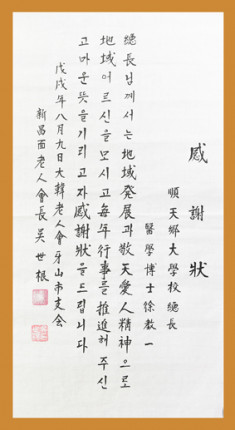 感謝狀
順天鄕大學校總長
醫學博士徐敎一
總長님께서는地域發展과敬天愛人精神으로
地域어르신을모시고每年行事를推進해주신
고마운뜻을기리고자感謝狀을드립니다
戊戌年八月九日大韓老人會牙山市支会
新昌面老人會長吴世根